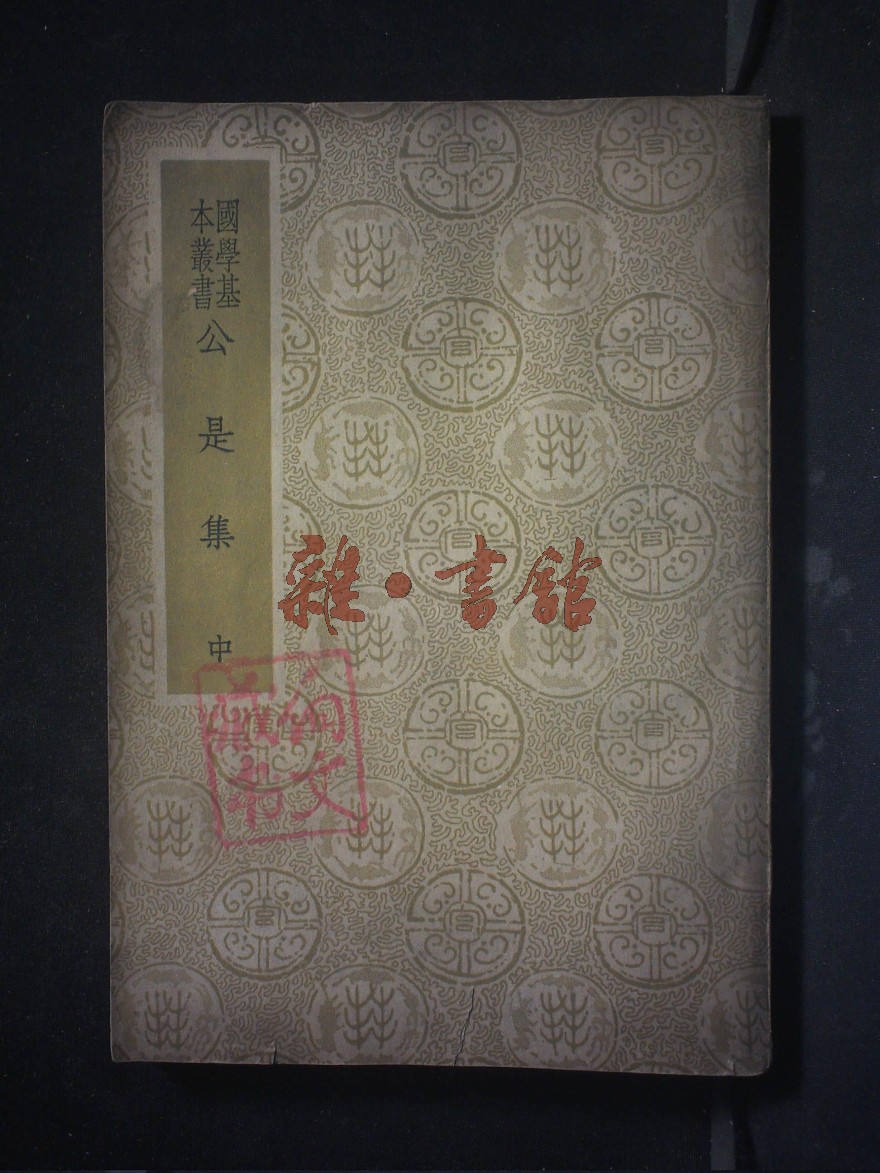 國學基
本叢書
公是集
中
雜·書館
文
藏書